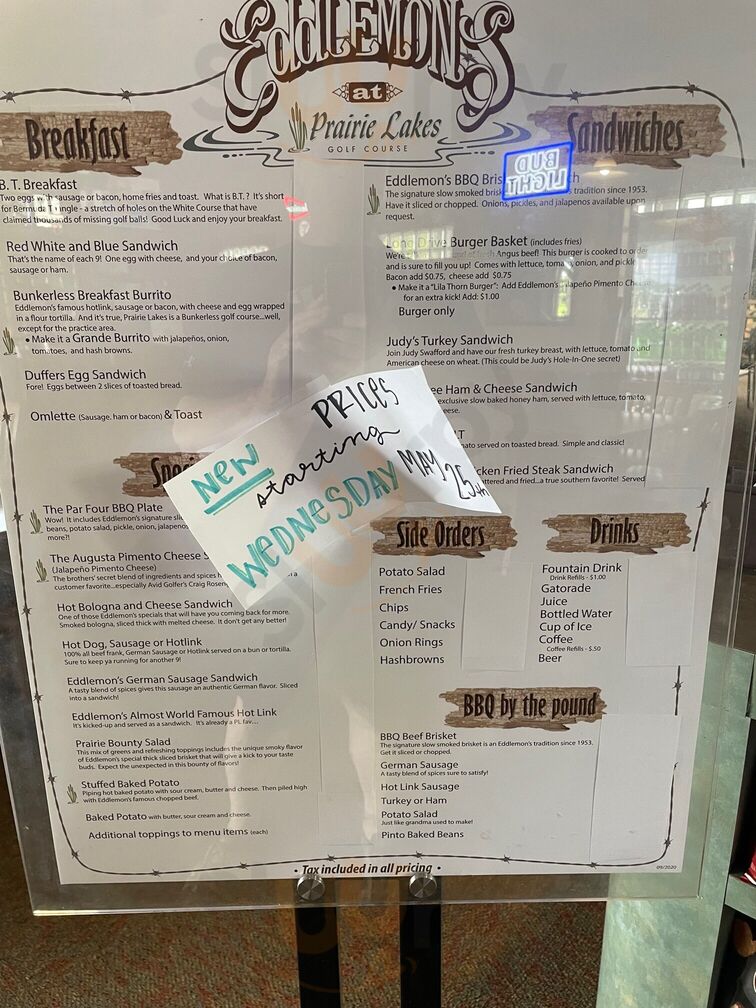 EddLEMONS
at
Prairie Lakes
GOLF COURSE
Breakfast
B.T. Breakfast
Two eggs with sausage or bacon, home fries and toast. What is B.T.? It's short
for Bermuda Triangle - a stretch of holes on the White Course that have
claimed thousands of missing golf balls! Good Luck and enjoy your breakfast.
Red White and Blue Sandwich
That's the name of each 9! One egg with cheese, and your choice of bacon,
sausage or ham.
Bunkerless Breakfast Burrito
Eddlemon's famous hotlink, sausage or bacon, with cheese and egg wrapped
in a flour tortilla. And it's true, Prairie Lakes is a Bunkerless golf course...well,
except for the practice area.
• Make it a Grande Burrito with jalapeños, onion,
tomatoes, and hash browns.
Duffers Egg Sandwich
Fore! Eggs between 2 slices of toasted bread.
Omlette (Sausage, ham or bacon) & Toast
NEW
PRICES
starting
WEDNESDAY MAY 25th
The Par Four BBQ Plate
Wow! It includes Eddlemon's signature
beans, potato salad, pickle, onion, jalapenos
more?!
The Augusta Pimento Cheese
(Jalapeño Pimento Cheese)
The brothers' secret blend of ingredients and spices
customer favorite...especially Avid Golfer's Craig
Hot Bologna and Cheese Sandwich
One of those Eddlemon's specials that will have you coming back for more.
Smoked bologna, sliced thick with melted cheese. It don't get any better!
Hot Dog, Sausage or Hotlink
100% all beef frank, German Sausage or Hotlink served on a bun or tortilla.
Sure to keep ya running for another 9!
Eddlemon's German Sausage Sandwich
A tasty blend of spices gives this sausage an authentic German flavor. Sliced
into a sandwich!
Eddlemon's Almost World Famous Hot Link
It's kicked-up and served as a sandwich. It's already a PL fav....
Prairie Bounty Salad
This mix of greens and refreshing toppings includes the unique smoky flavor
of Eddlemon's special thick sliced brisket that will give a kick to your taste
buds. Expect the unexpected in this bounty of flavors!
Stuffed Baked Potato
Piping hot baked potato with sour cream, butter and cheese. Then piled high
with Eddlemon's famous chopped beef.
Baked Potato with butter, sour cream and cheese.
Additional toppings to menu items (each)
Sandwiches
BUD
LIGHT
Eddlemon's BBQ
The signature slow smoked tradition since 1953.
Have it sliced or chopped. Onions, pickles, and jalapenos available upon
request.
Long Drive Burger Basket (includes fries)
Angus beef! This burger is cooked to order
and is sure to fill you up! Comes with lettuce, tomato, onion, and pickle
Bacon add $0.75, cheese add $0.75
• Make it a "Lila Thorn Burger": Add Eddlemon's Jalapeño Pimento Cheese
for an extra kick! Add: $1.00
Burger only
Judy's Turkey Sandwich
Join Judy Swafford and have our fresh turkey breast, with lettuce, tomato and
American cheese on wheat. (This could be Judy's Hole-In-One secret)
Ham & Cheese Sandwich
exclusive slow baked honey ham, served with lettuce, tomato,
served on toasted bread. Simple and classic!
Fried Steak Sandwich
and fried...a true southern favorite! Served
Side Orders
Potato Salad
French Fries
Chips
Candy/ Snacks
Onion Rings
Hashbrowns
Drinks
Fountain Drink
Drink Refills - $1.00
Gatorade
Juice
Bottled Water
Cup of Ice
Coffee
Coffee Refills - $.50
Beer
BBQ by the pound
BBQ Beef Brisket
The signature slow smoked brisket is an Eddlemon's tradition since 1953.
Get it sliced or chopped.
German Sausage
A tasty blend of spices sure to satisfy!
Hot Link Sausage
Turkey or Ham
Potato Salad
Just like grandma used to make!
Pinto Baked Beans
• Tax included in all pricing •
09/2020